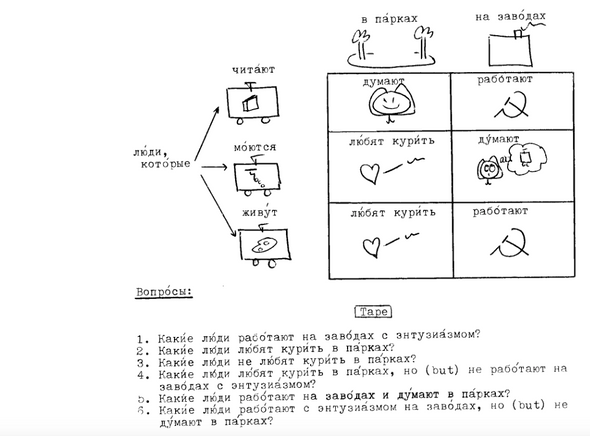 в па́рках
на заво́дах
чита́ют
ду́мают
рабо́тают
мо́ются
лю́бят кури́ть
ду́мают
лю́ди,
кото́рые
живу́т
лю́бят кури́ть
рабо́тают
Вопро́сы:
Tape
1. Каки́е лю́ди рабо́тают на заво́дах с энтузиа́змом?
2. Каки́е лю́ди лю́бят кури́ть в па́рках?
3. Каки́е лю́ди не лю́бят кури́ть в па́рках?
4. Каки́е лю́ди лю́бят кури́ть в па́рках, но (but) не рабо́тают на
заво́дах с энтузиа́змом?
5. Каки́е лю́ди рабо́тают на заво́дах и ду́мают в па́рках?
6. Каки́е лю́ди рабо́тают с энтузиа́змом на заво́дах, но (but) не
ду́мают в па́рках?